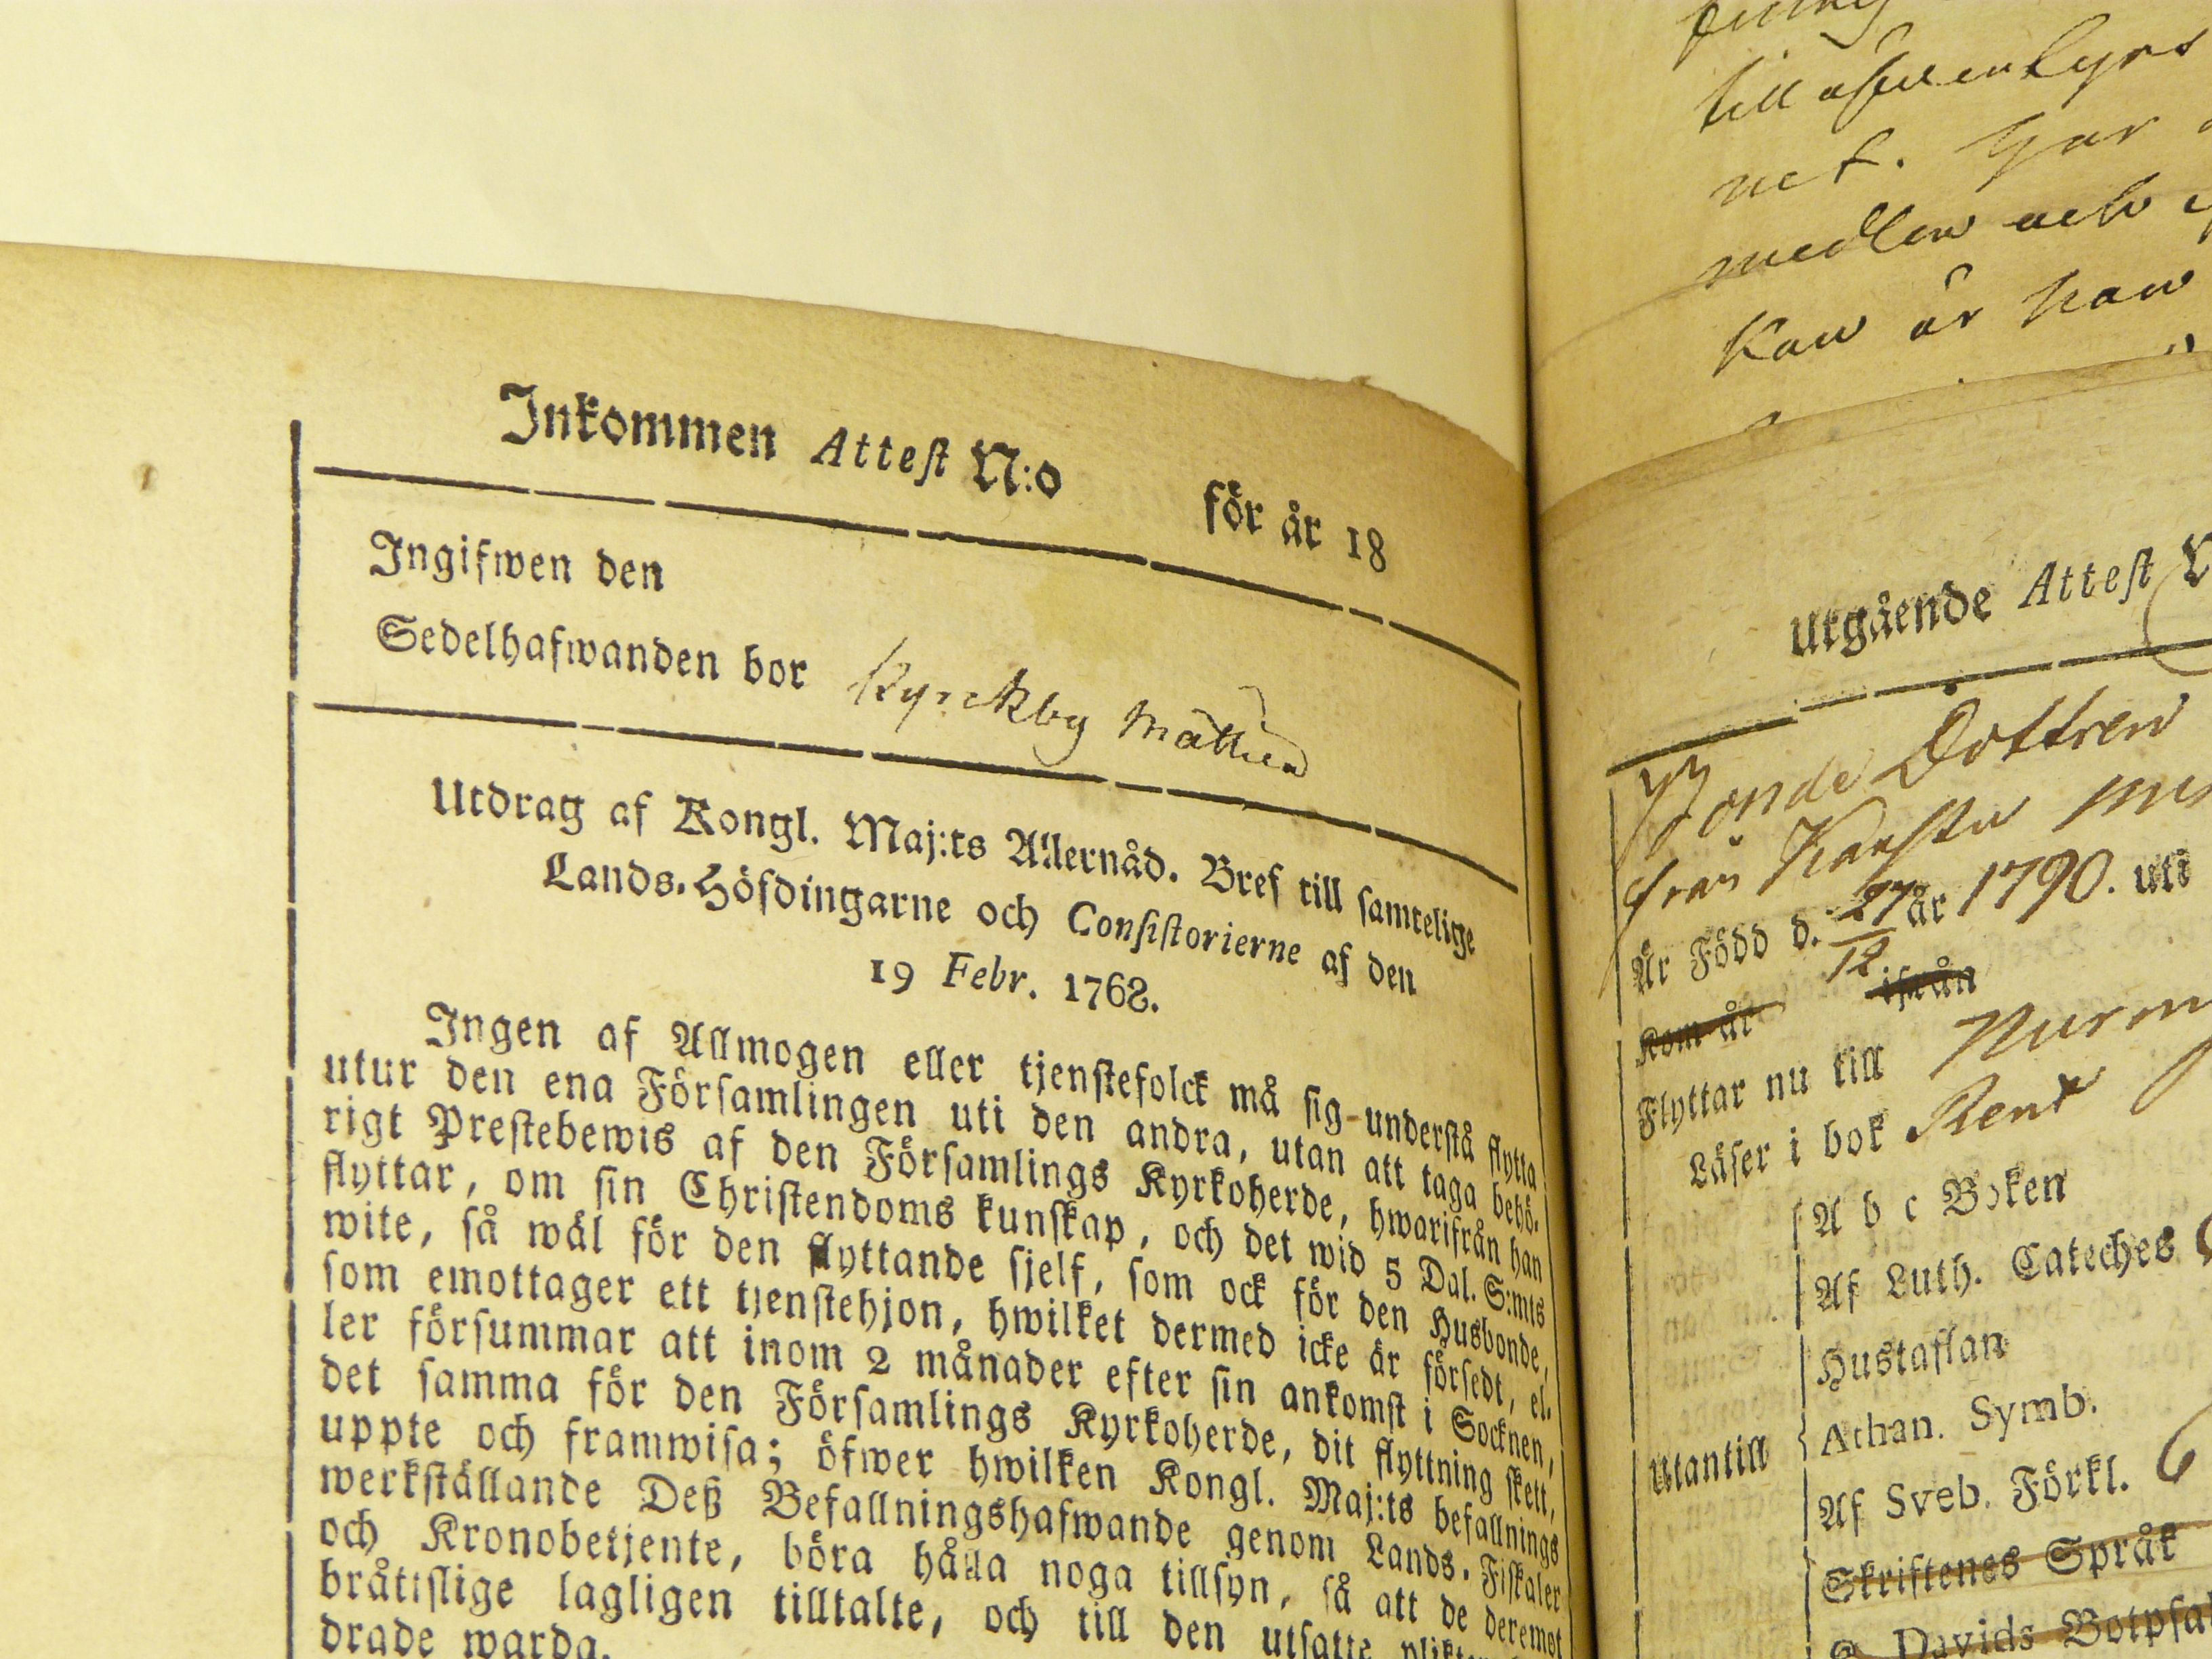 Inkommen Attest N:o för år 18
Ingifwen den
Sedelhafwanden bor Kyrckby Mattila
Utdrag af Kongl. Maj:ts Allernåd. Bref till samtelige
Lands-Höfdingarne och Consistorierne af den
19 Febr. 1768.
Ingen af Allmogen eller tjenstefolck må sig understå flytta
utur den ena Församlingen uti den andra, utan att taga behö-
rigt Prestebewis af den Församlings Kyrkoherde, hwarifrån han
flyttar, om sin Christendoms kunskap, och det wid 5 Dal. S:mts
wite, så wäl för den flyttande sjelf, som ock för den Husbonde,
som emottager ett tjenstehjon, hwilket dermed icke är försedt, el-
ler försummar att inom 2 månader efter sin ankomst i Socknen,
det samma för den Församlings Kyrkoherde, dit flyttning skett,
uppte och framwisa; öfwer hwilken Kongl. Maj:ts befallnings
werkställande Deß Befallningshafwande genom Lands-Fiskaler
och Kronobetjente, böra hålla noga tillsyn, så att de deremot
bråttslige lagligen tilltalte, och till den utsatte
drade warda.
till
net. har
medlen och
Kan är han
Utgående Attest N
Bonde Dottren
från
Är Född d. 27/12 år 1790. uti
Kom år ifrån
Flyttar nu till
Läser i bok Rent
Utantill
A b c Boken
Af Luth. Cateches
Hustaflan
Athan. Symb.
Af Sveb. Förkl.
Skriftenes Språk
Davids Botpsal